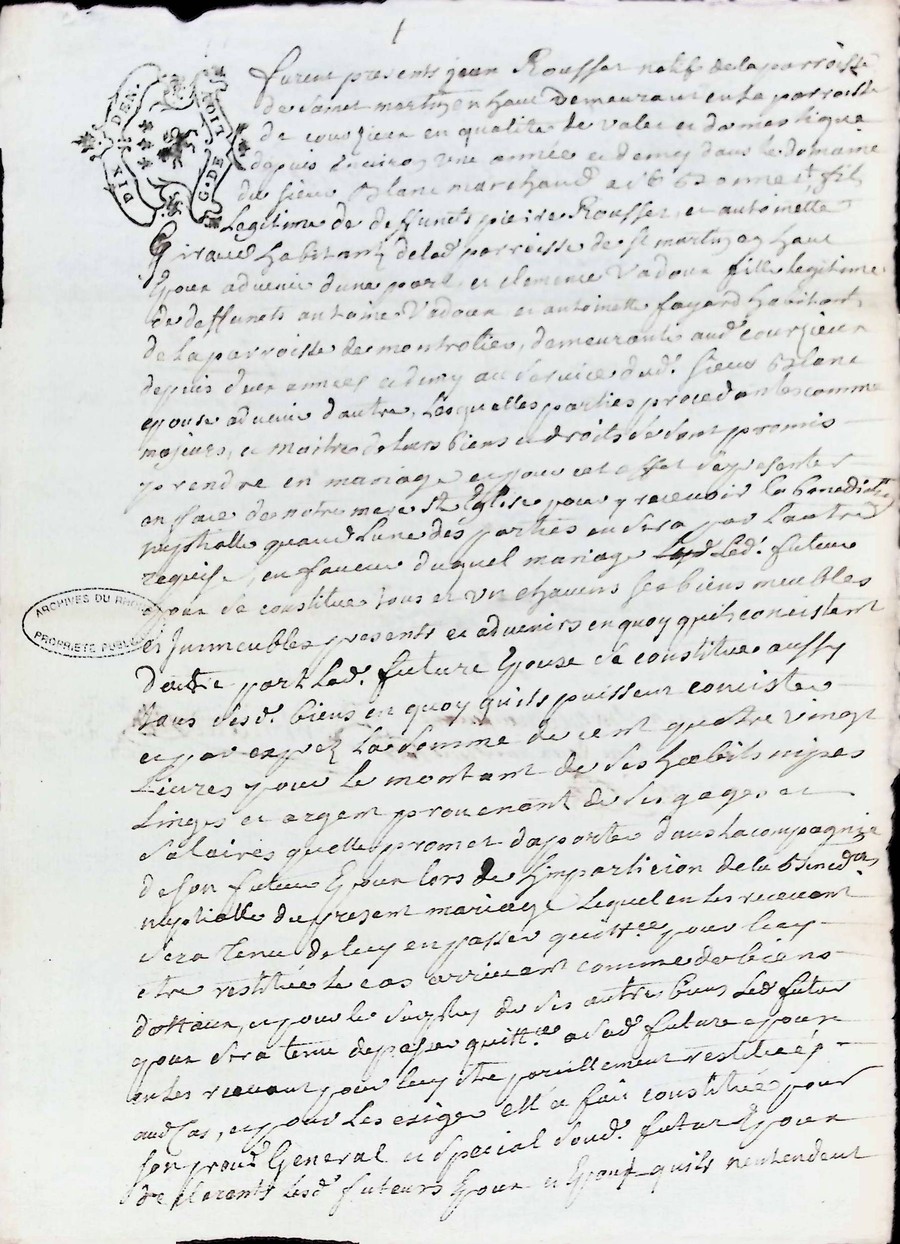 1
DIX DEN.
G. DE NDIT
furent presents jean Rousset natif de la parroisse
de Saint martin en haut demeurant en la parroisse
de courzieu en qualité de valet et domestique
depuis Environ une année et demy dans le domaine
du sieur Blanc marchand a fils
Legitime de deffunts pierre Rousset, et antoinette
Giraud habitantz de lad. parroisse de st martin en haut
Epoux advenir d'une part, et clemence Vadoux fille legitime
de deffunts antoine Vadoux et antoinette fayard habitants
de la parroisse de montrotier, demeurante aud. courzieux
depuis deux années et demy au service dud. sieur Blanc
epouse advenir d'autre, Lesquelles parties procedantes comme
majeurs, et maitre de leurs biens et droits se sont promis
prendre en mariage et pour cet effet se presenter
en face de notre mere ste Eglise pour y recevoir la benediction
nuptialle quand L'une des parties en sera par L'autre
requise, en faveur duquel mariage Led. futur
epoux se constitue tous et un chacuns ses biens meubles
et Immeubles presents et advenirs en quoy qu'ils consistent
d'autre part Lad. future Epouse se constitue aussy
tous sesd. biens en quoy qu'ils puissent consister
et par exprez La Somme de cent quatre vingt
Livres pour le montant de ses habits nipes
Linges et argent provenant de ses gages et
Salaires qu'elle promet d'aporter dans la compagnie
de son futur Epoux lors de L'impartition de la Bened.on
nuptialle du present mariage Lequel en les recevant
sera tenu de luy en passer quitt.ce pour luy
etre restituée le cas arrivant comme de biens
dottaux, et pour le surplus de ses autres biens Led. futur
epoux sera tenu de passer quitt.ce a sad. future epouse
en les recevant pour luy etre pareillement restitués
aud. cas, et pour les exiger elle a fait constitué pour
son proc.r General et Special Sond. futur Epoux
declarants Lesd. futurs Epoux et Epouse qu'ils n'entendent
ARCHIVES DU RHÔNE
PROPRIETE PUBLIQUE